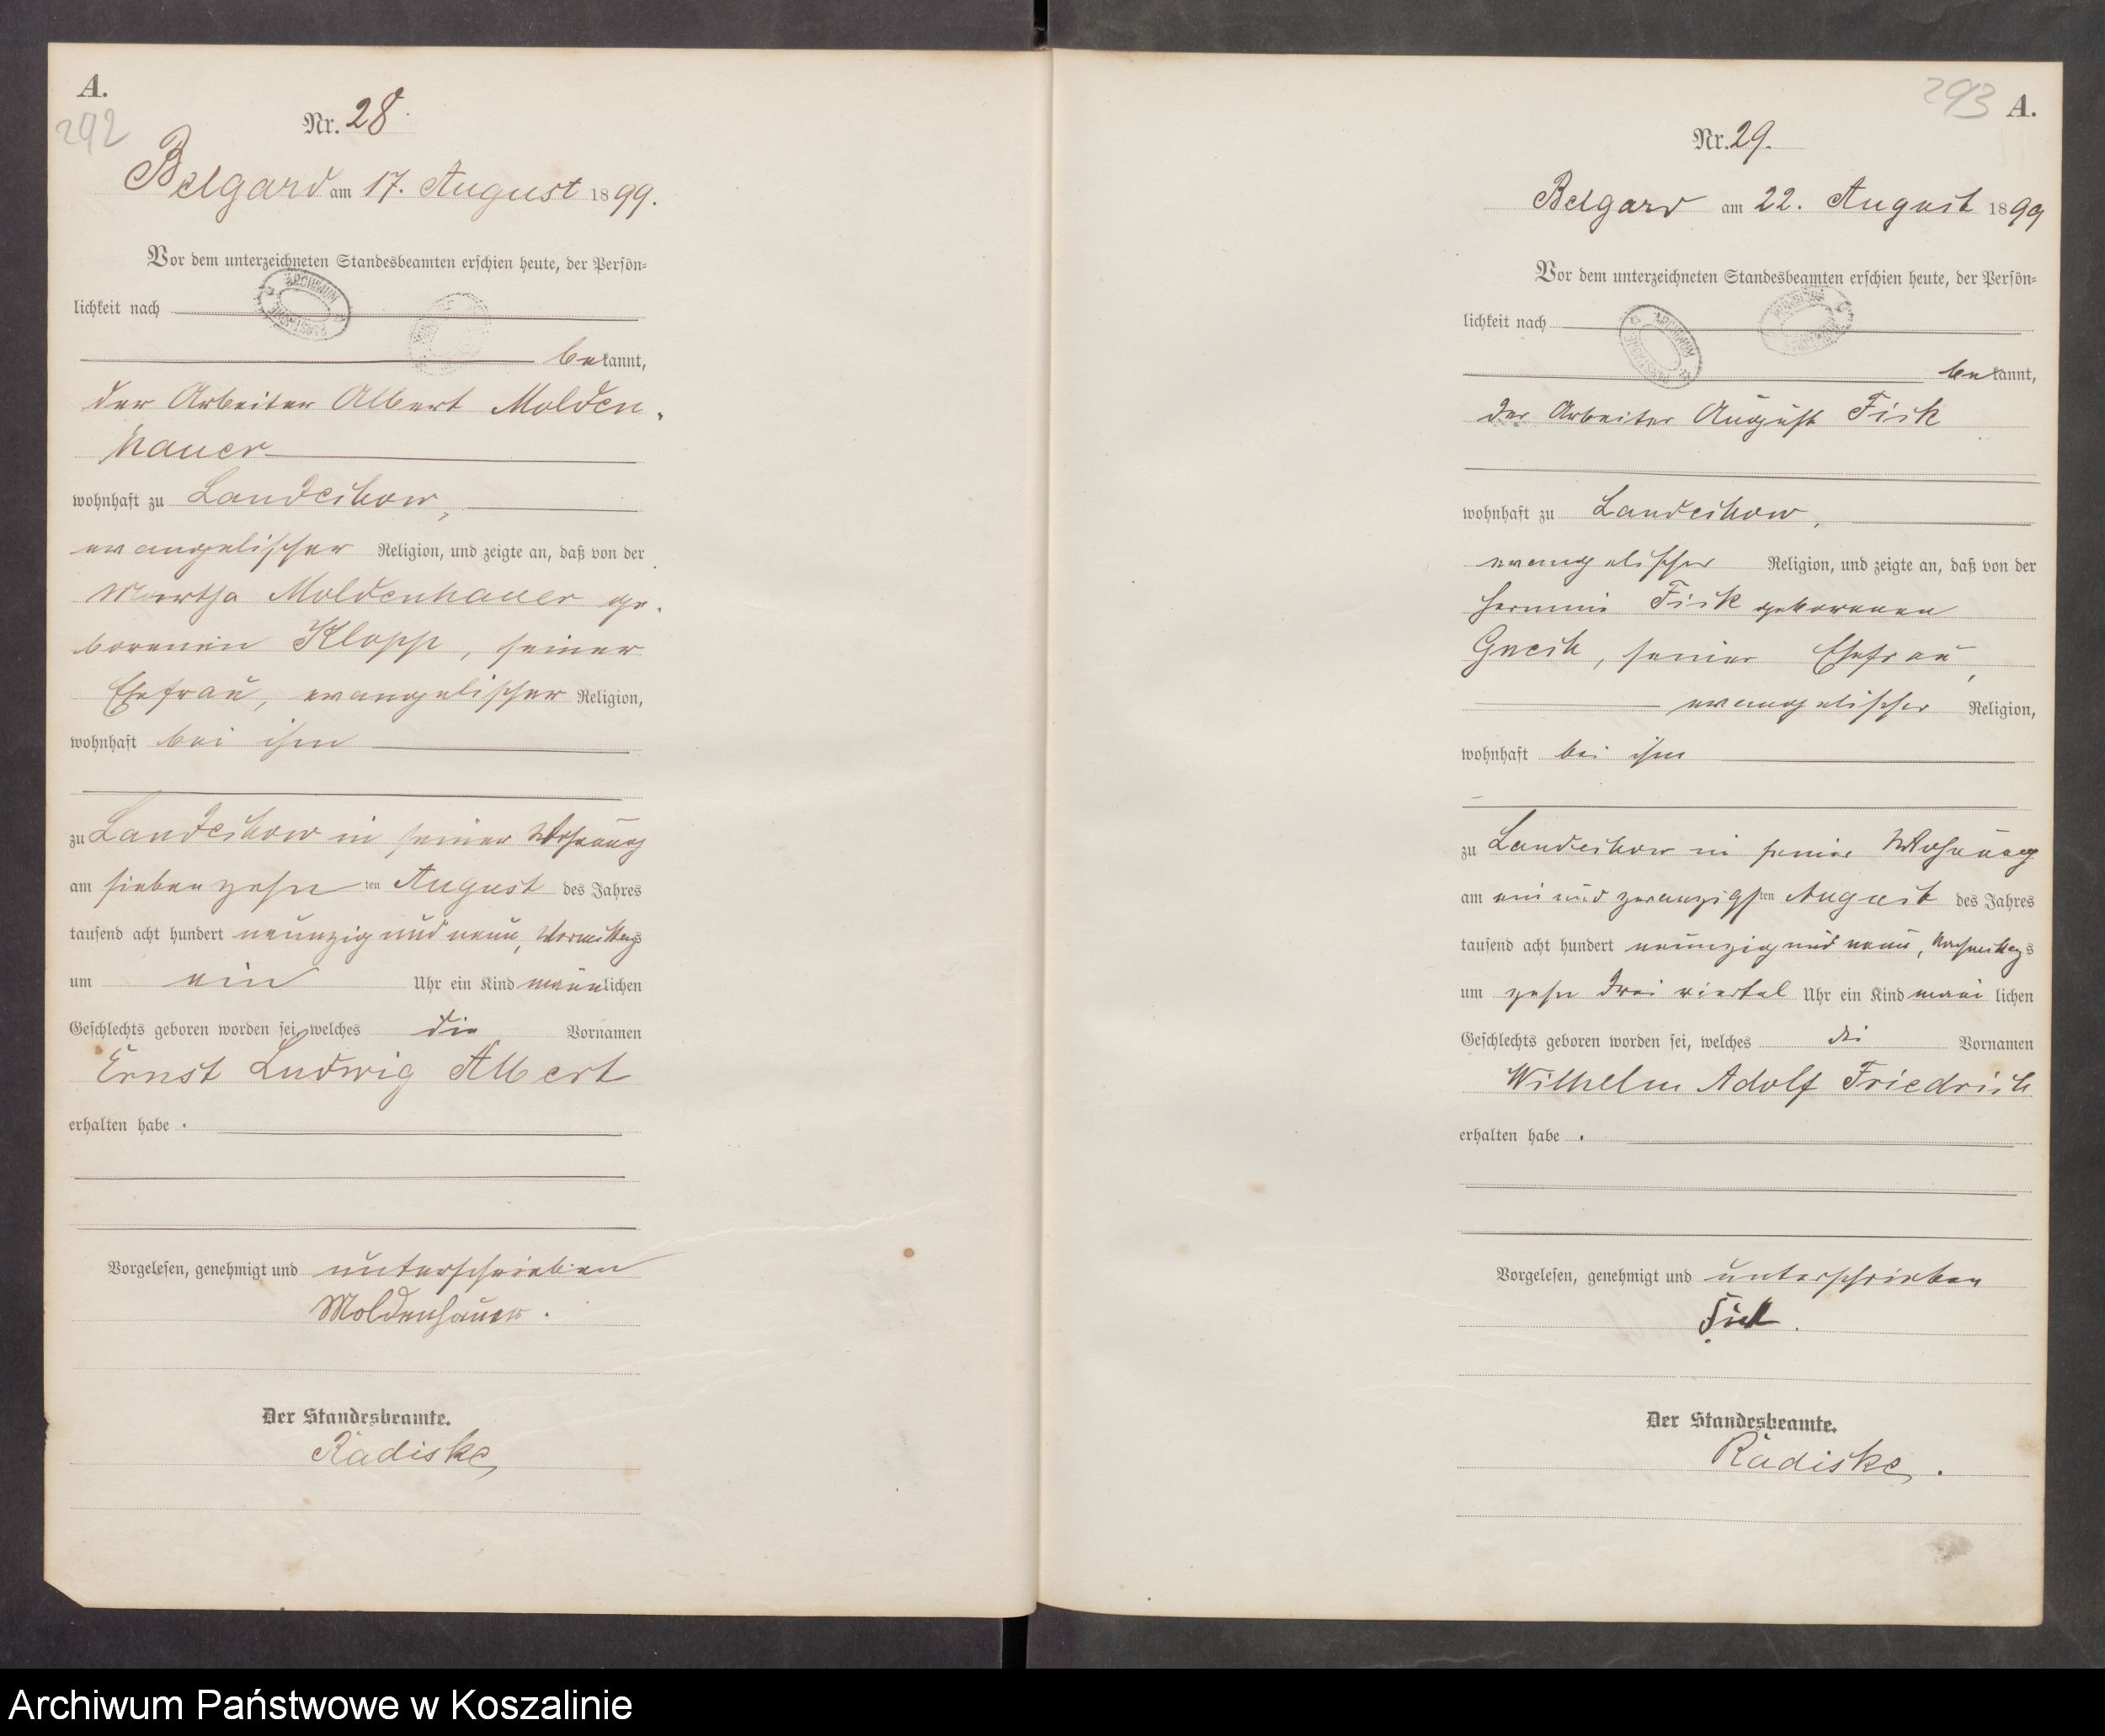 A.
292
Nr. 28.
Belgard am 17. August 1899.
Vor dem unterzeichneten Standesbeamten erschien heute, der Persön-
lichkeit nach
bekannt,
der Arbeiter Albert Molden-
hauer
wohnhaft zu Landechow,
evangelischer Religion, und zeigte an, daß von der
Moldenhauer ge-
borenen Klopp, seiner
Ehefrau, evangelischer Religion,
wohnhaft bei ihm
zu Landechow in seiner Wohnung
am siebenzehnten August des Jahres
tausend acht hundert neunzig und neun, Vormittags
um ein Uhr ein Kind männlichen
Geschlechts geboren worden sei, welches die Vornamen
Ernst Ludwig Albert
erhalten habe.
Vorgelesen, genehmigt und unterschrieben
Moldenhauer.
Der Standesbeamte.
Radiske
293
A.
Nr. 29.
Belgard am 22. August 1899
Vor dem unterzeichneten Standesbeamten erschien heute, der Persön-
lichkeit nach
bekannt,
der Arbeiter August Fick
wohnhaft zu Landechow,
evangelischer Religion, und zeigte an, daß von der
Hermine Fick geborenen
seiner Ehefrau,
evangelischer Religion,
wohnhaft bei ihm
zu Landechow in seiner Wohnung
am ein und zwanzigsten August des Jahres
tausend acht hundert neunzig und neun, Nachmittags
um zehn drei viertel Uhr ein Kind männlichen
Geschlechts geboren worden sei, welches die Vornamen
Wilhelm Adolf Friedrich
erhalten habe.
Vorgelesen, genehmigt und unterschrieben
Fick.
Der Standesbeamte.
Radiske.
Archiwum Państwowe w Koszalinie